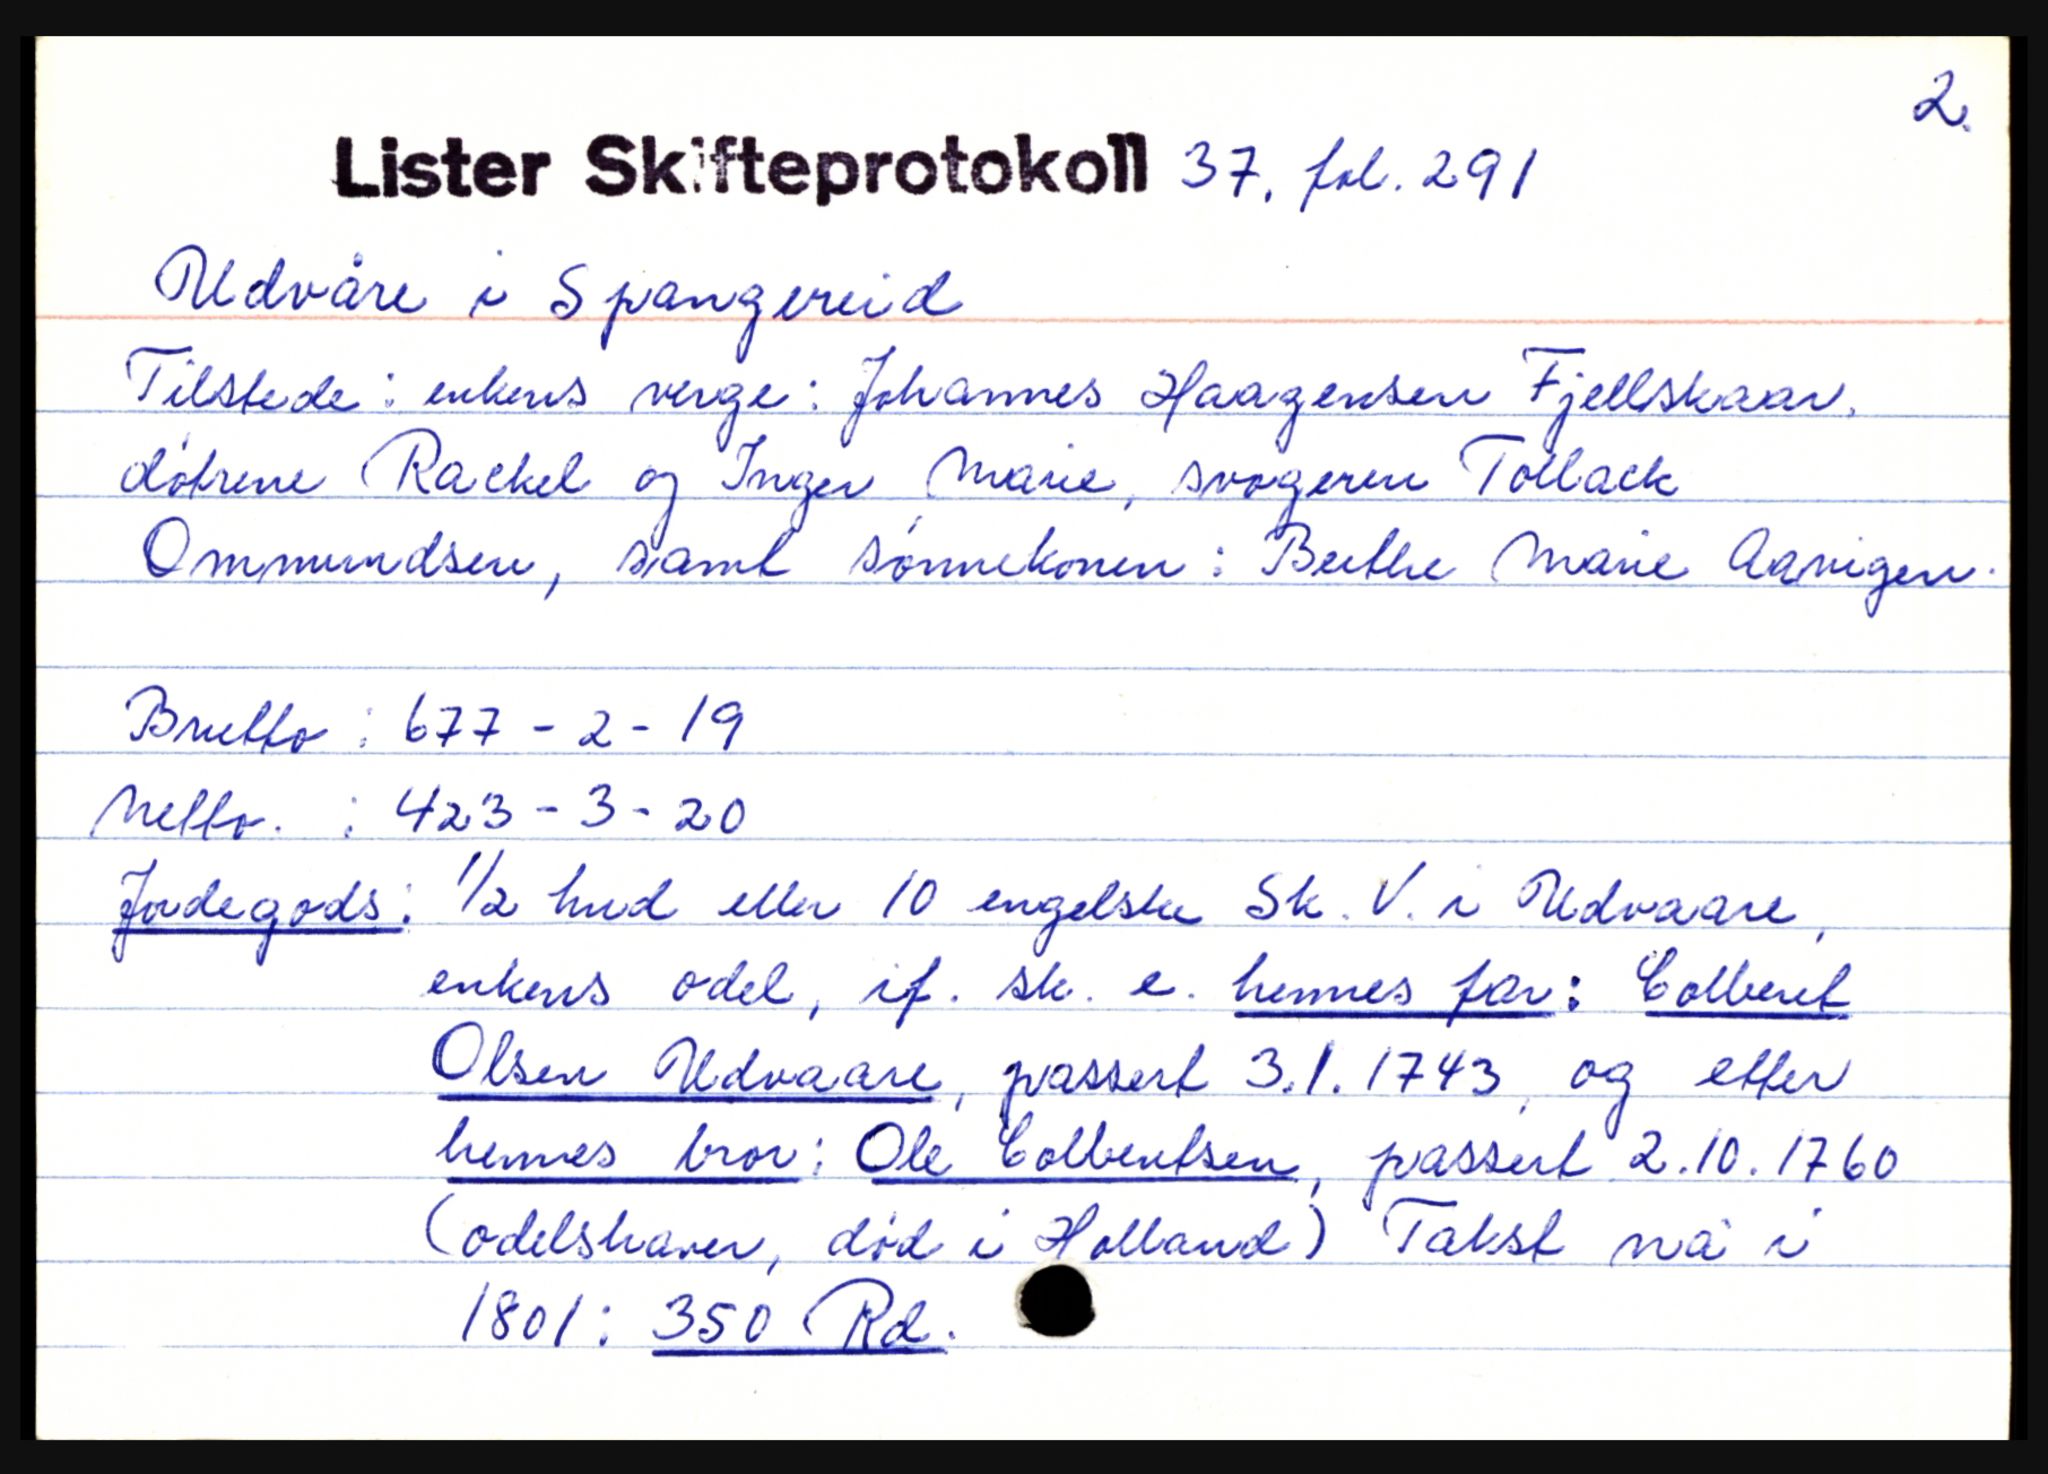 2.
Lister Skifteprotokoll 37. fol. 291
Udvåre i Spangereid
Tilstede: enkens verge: Johannes Haagensen Fjellskaar,
døtrene Rackel og Inger Marie, svogeren Tollack
Ommundsen, samt sønnekonen: Berthe Marie Aavigen.
Brutto: 677 - 2 - 19
Netto. : 423 - 3 - 20
Jordegods: 1/2 hud eller 10 engelske Sk. V. i Udvaare,
enkens odel, if. sk. e. hennes far: Colberet
Olsen Udvaare, passert 3.1.1743, og etter
hennes bror: Ole Colbentsen, passert 2.10.1760
(odelshaver, død i Holland) Takst nå i
1801: 350 Rd.